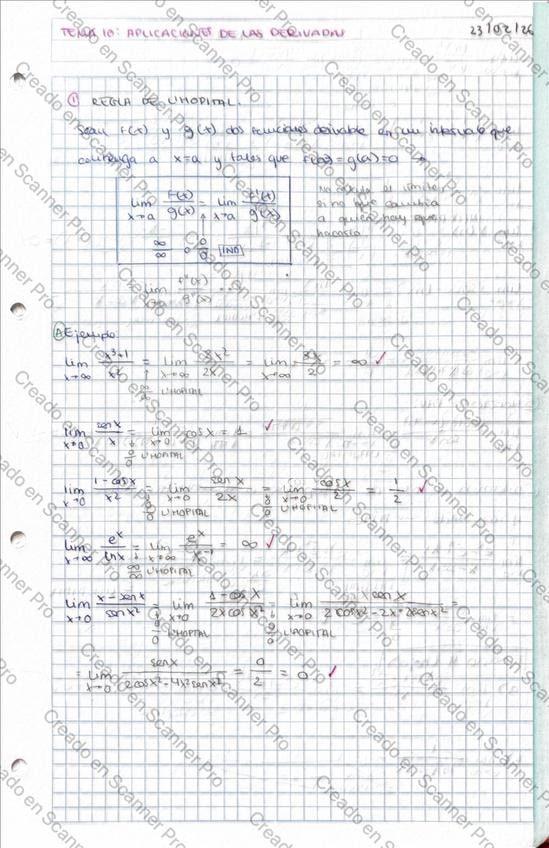 TEMA 10: APLICACIONES DE LAS DERIVADAS 23/02/26
① REGLA DE L'HOPITAL.
Sean f(x) y g(x) dos funciones derivable en un intervalo que
contenga a x=a y tales que f(a)=g(a)=0
lim x→a f(x)/g(x) = lim x→a f'(x)/g'(x)
∞/∞ o 0/0 IND
No calcula el límite,
si no que cambia
a quien hay que
hacerlo
lim f''(x)/g''(x)
Ejemplo
lim x→∞ x³+1/x² = lim x→∞ 3x²/2x = lim x→∞ 3x/2 = ∞ ✓
∞/∞ L'HOPITAL
lim x→0 senx/x = lim x→0 cosx = 1 ✓
0/0 L'HOPITAL
lim x→0 1-cosx/x² = lim x→0 senx/2x = lim x→0 cosx/2 = 1/2 ✓
0/0 L'HOPITAL 0/0 L'HOPITAL
lim x→∞ e^x/lnx = lim x→∞ e^x/x^-1 = ∞ ✓
∞/∞ L'HOPITAL
lim x→0 x-senx/senx² = lim x→0 1-cosx/2xcosx² = lim x→0 senx/2cosx²-2x·2xsenx² =
0/0 L'HOPITAL 0/0 L'HOPITAL
= lim x→0 senx/2cosx²-4x²senx² = 0/2 = 0 ✓
Creado en Scanner Pro